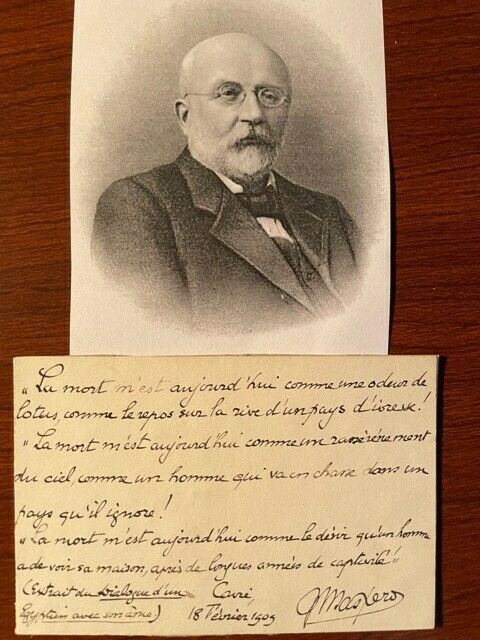 "La mort m'est aujourd'hui comme une odeur de
lotus, comme le repos sur la rive d'un pays d'ivresse!
"La mort m'est aujourd'hui comme un rassérénement
du ciel, comme un homme qui va en chasse dans un
pays qu'il ignore!
"La mort m'est aujourd'hui comme le désir qu'un homme
a de voir sa maison, après de longues années de captivité"
(Extrait du Dialogue d'un
Égyptien avec son âme)
Caire,
18 Février 1909
G Maspero